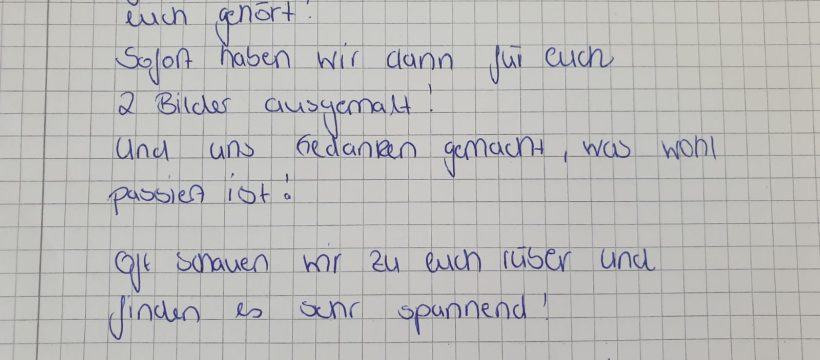 euch gehört!
Sofort haben wir dann für euch
2 Bilder ausgemalt!
Und uns Gedanken gemacht, was wohl
passiert ist!
Oft schauen wir zu euch rüber und
finden es sehr spannend!